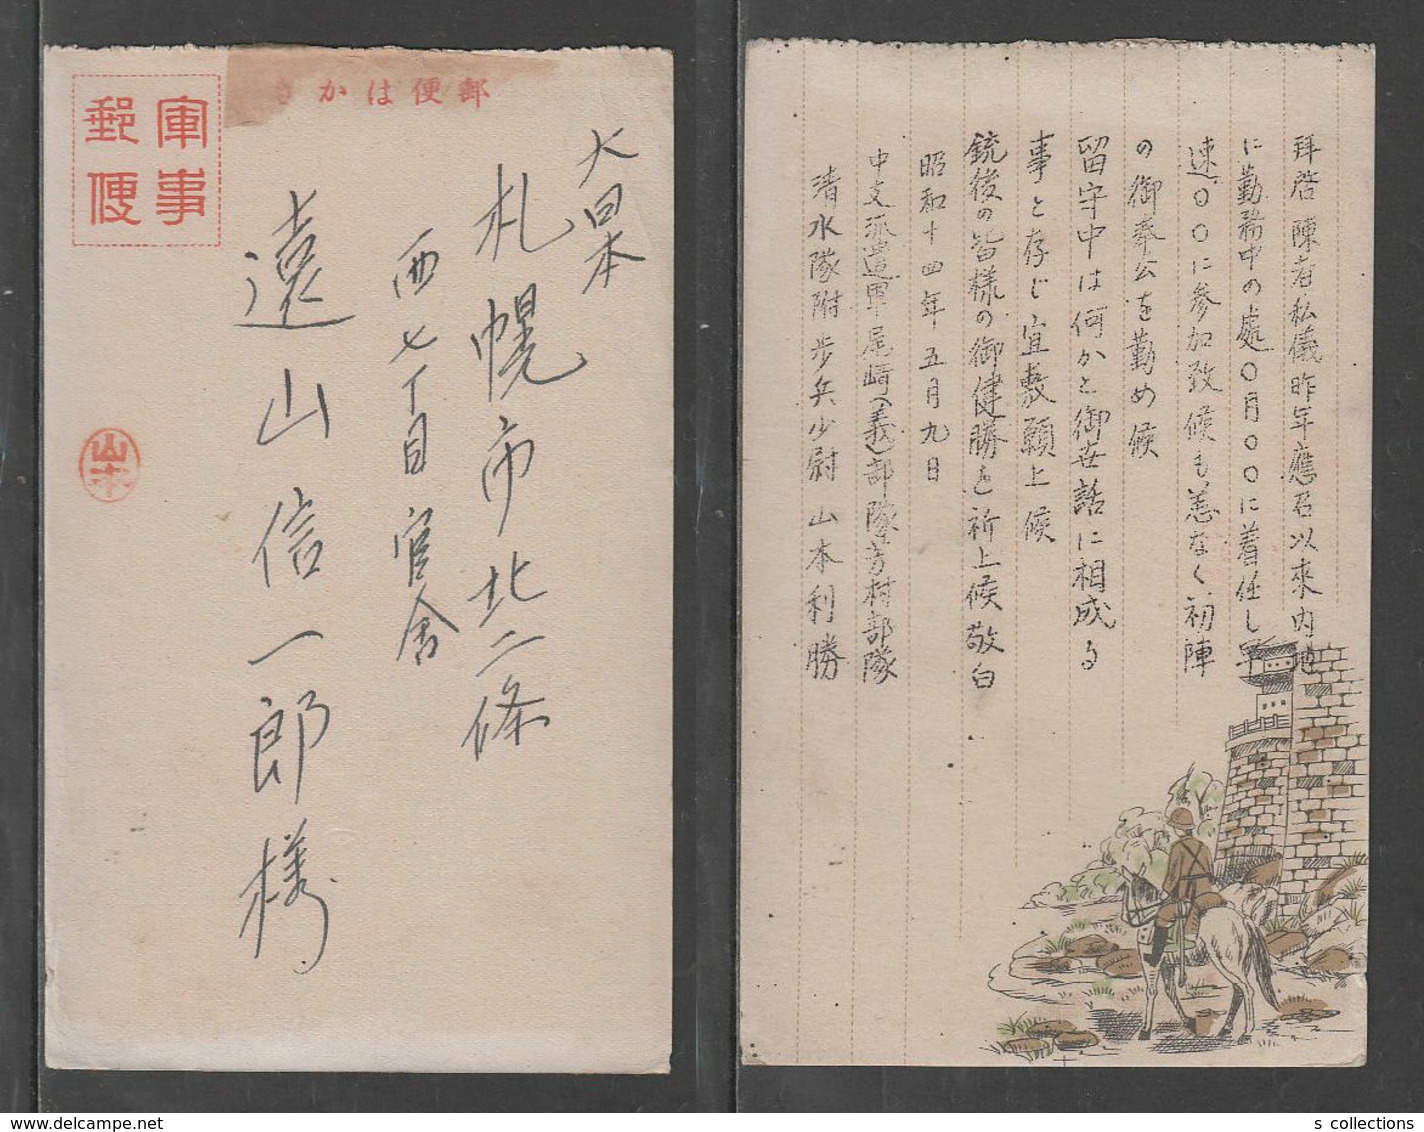 軍事
郵便
郵便はがき
大日本
札幌市北二條
西七丁目官舎
遠山信一郎様
山本
拝啓陳者私儀昨年應召以来内地
に勤務中の處〇月〇〇に着任し早
速〇〇に参加致候も恙なく初陣
の御奉公を勤め候
留守中は何かと御世話に相成る
事と存じ宜敷願上候
銃後の皆様の御健勝を祈上候敬白
昭和十四年五月九日
中支派遣軍尾崎(義)部隊芳村部隊
清水隊附歩兵少尉山本利勝
s collections